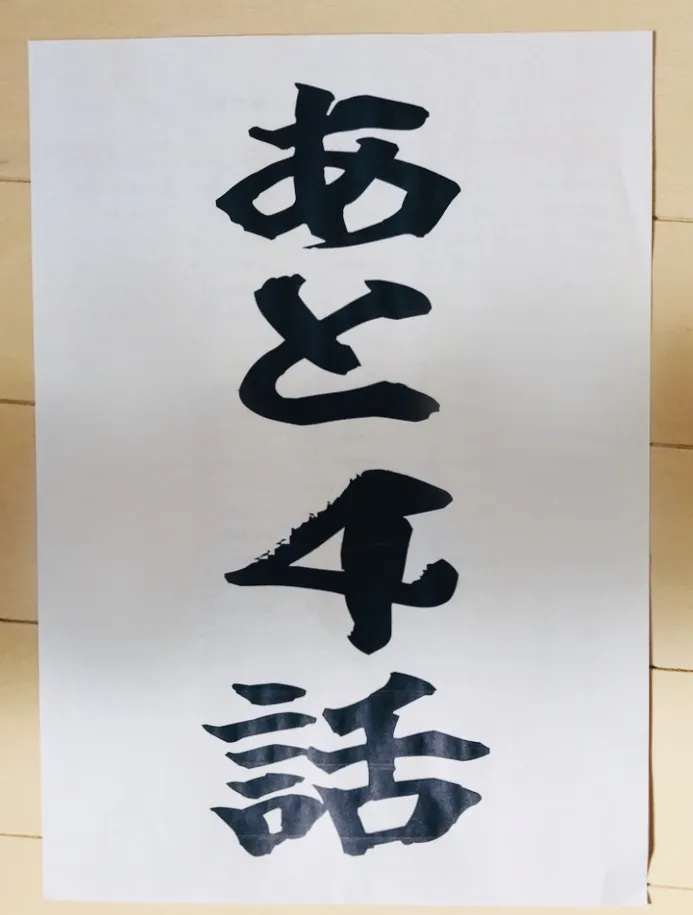 あと4話